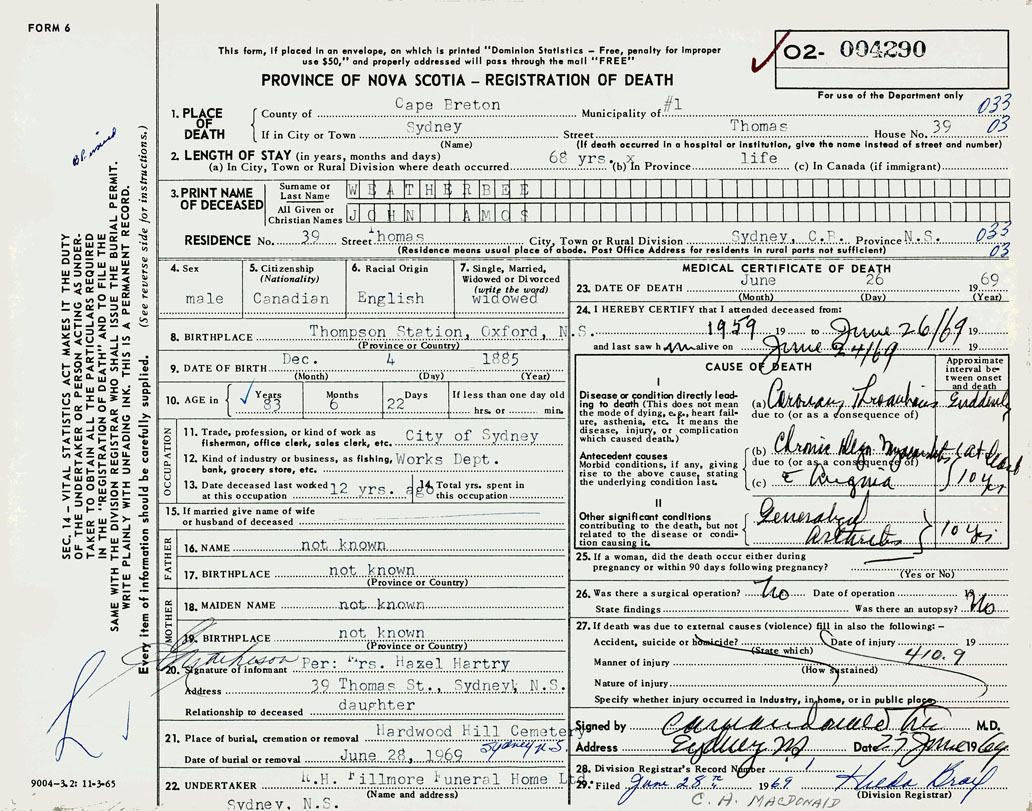 FORM 6
This form, if placed in an envelope, on which is printed "Dominion Statistics – Free, penalty for improper
use $50," and properly addressed will pass through the mail "FREE"
PROVINCE OF NOVA SCOTIA – REGISTRATION OF DEATH
02- 004290
For use of the Department only
1. PLACE OF DEATH
County of Cape Breton Municipality of #1 033
If in City or Town Sydney Street Thomas House No. 39 03
(Name) (If death occurred in a hospital or institution, give the name instead of street and number)
2. LENGTH OF STAY (in years, months and days)
(a) In City, Town or Rural Division where death occurred 68 yrs. x (b) In Province life (c) In Canada (if immigrant)
3. PRINT NAME OF DECEASED
Surname or Last Name WEATHERBEE
All Given or Christian Names JOHN AMOS
RESIDENCE No. 39 Street Thomas City, Town or Rural Division Sydney, C.B. Province N.S. 033
(Residence means usual place of abode. Post Office Address for residents in rural parts not sufficient) 03
4. Sex male
5. Citizenship (Nationality) Canadian
6. Racial Origin English
7. Single, Married, Widowed or Divorced (write the word) widowed
8. BIRTHPLACE Thompson Station, Oxford, N.S.
(Province or Country)
9. DATE OF BIRTH Dec. 4 1885
(Month) (Day) (Year)
10. AGE in Years 83 Months 6 Days 22 If less than one day old hrs. or min.
OCCUPATION
11. Trade, profession, or kind of work as fisherman, office clerk, sales clerk, etc. City of Sydney
12. Kind of industry or business, as fishing, bank, grocery store, etc. Works Dept.
13. Date deceased last worked at this occupation 12 yrs. ago
14. Total yrs. spent in this occupation
15. If married give name of wife or husband of deceased
FATHER
16. NAME not known
17. BIRTHPLACE not known
(Province or Country)
MOTHER
18. MAIDEN NAME not known
19. BIRTHPLACE not known
(Province or Country)
20. Signature of informant Per: Mrs. Hazel Hartry
Address 39 Thomas St., Sydney, N.S.
Relationship to deceased daughter
21. Place of burial, cremation or removal Hardwood Hill Cemetery
Sydney N.S.
Date of burial or removal June 28, 1969
22. UNDERTAKER R.H. Fillmore Funeral Home Ltd.
(Name and address)
Sydney, N.S.
MEDICAL CERTIFICATE OF DEATH
23. DATE OF DEATH June 26 1969
(Month) (Day) (Year)
24. I HEREBY CERTIFY that I attended deceased from:
1959 19 to June 26/69 19
and last saw h im alive on June 24/69 19
CAUSE OF DEATH
Approximate interval between onset and death
I
Disease or condition directly leading to death (This does not mean the mode of dying, e.g., heart failure, asthenia, etc. It means the disease, injury, or complication which caused death.)
(a) Coronary Thrombosis Suddenly
due to (or as a consequence of)
Antecedent causes
Morbid conditions, if any, giving rise to the above cause, stating the underlying condition last.
(b) Chronic Degn (at least
due to (or as a consequence of)
(c) Angina 10 yrs
II
Other significant conditions contributing to the death, but not related to the disease or condition causing it.
Generalized
Arthritis 10 yrs
25. If a woman, did the death occur either during pregnancy or within 90 days following pregnancy?
(Yes or No)
26. Was there a surgical operation? No Date of operation 19
State findings Was there an autopsy? No
27. If death was due to external causes (violence) fill in also the following: –
Accident, suicide or homicide? Date of injury 19
(State which) 410.9
Manner of injury
(How sustained)
Nature of injury
Specify whether injury occurred in Industry, in home, or in public place
Signed by M.D.
Address Sydney NS Date 27 June 1969
28. Division Registrar's Record Number
29. Filed June 28 1969
(Division Registrar)
C. A. MACDONALD
SEC. 14 – VITAL STATISTICS ACT MAKES IT THE DUTY
OF THE UNDERTAKER OR PERSON ACTING AS UNDER-
TAKER TO OBTAIN ALL THE PARTICULARS REQUIRED
IN THE "REGISTRATION OF DEATH" AND TO FILE THE
SAME WITH THE DIVISION REGISTRAR WHO SHALL ISSUE THE BURIAL PERMIT.
WRITE PLAINLY WITH UNFADING INK. THIS IS A PERMANENT RECORD.
Every item of information should be carefully supplied. (See reverse side for instructions.)
9004-3.2: 11-3-65